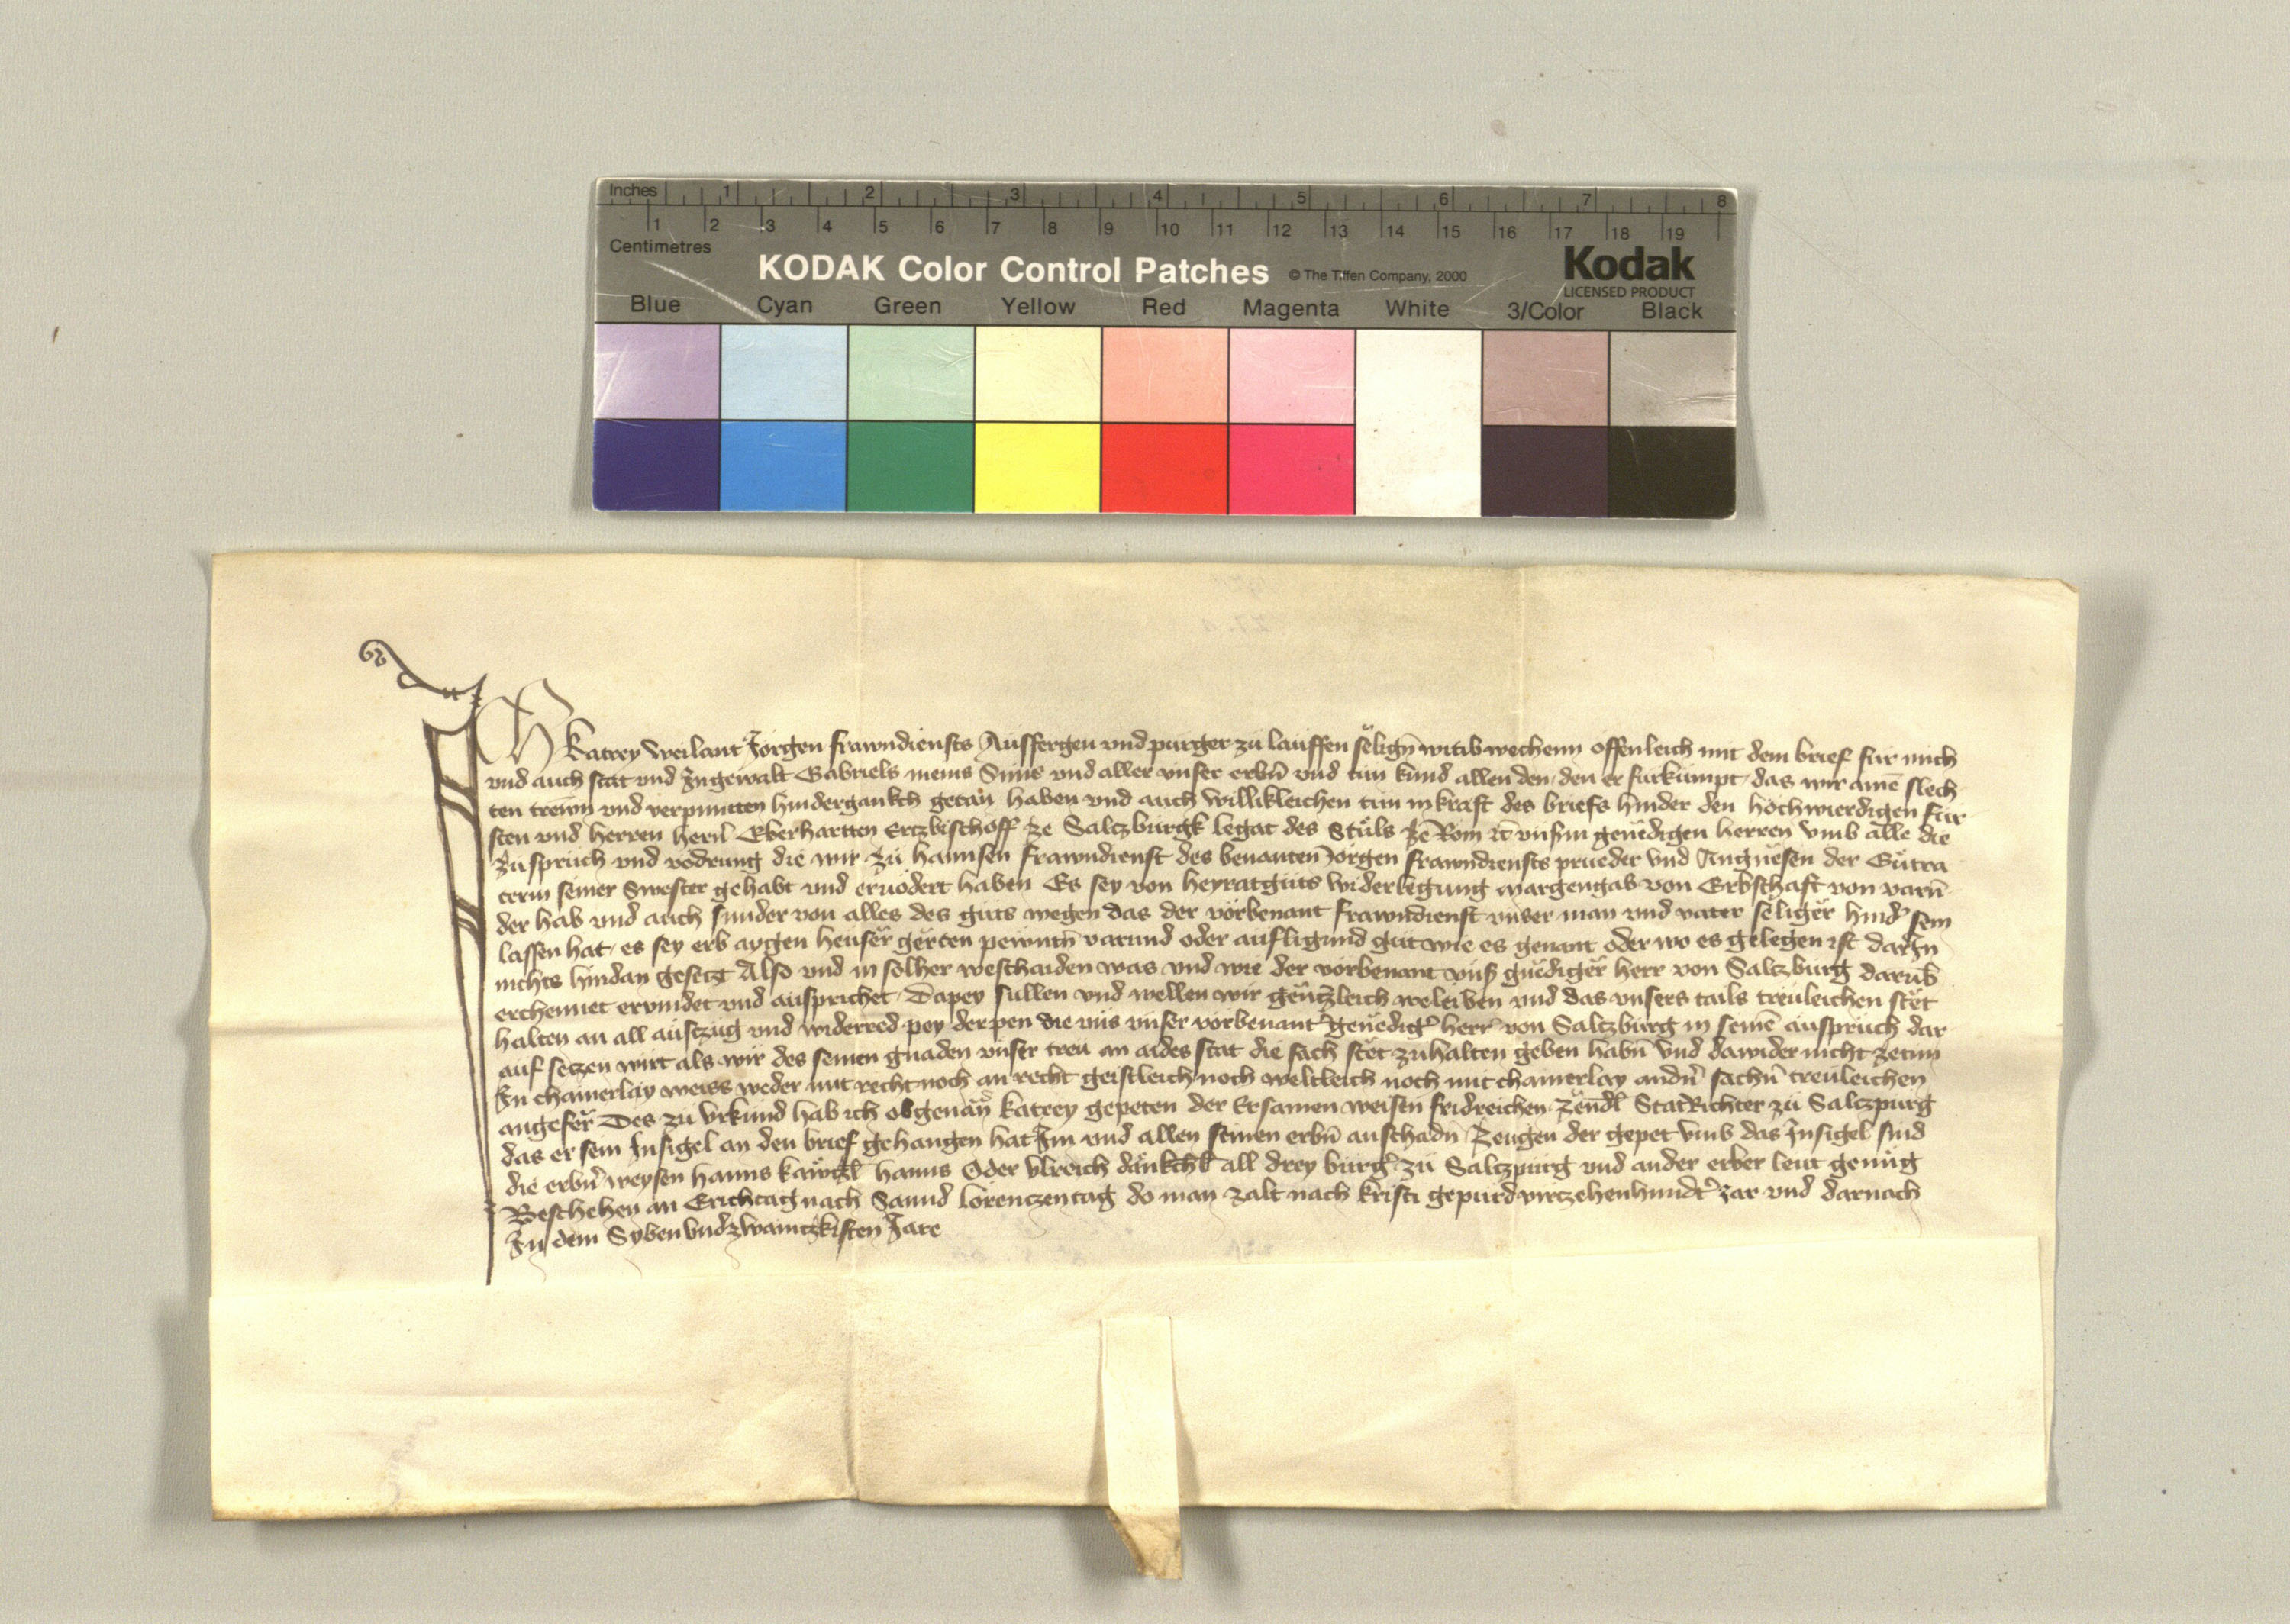 Inches 1 2 3 4 5 6 7 8
1 2 3 4 5 6 7 8 9 10 11 12 13 14 15 16 17 18 19
Centimetres
KODAK Color Control Patches © The Tiffen Company, 2000 Kodak
LICENSED PRODUCT
Blue Cyan Green Yellow Red Magenta White 3/Color Black
Ich Katrey weilant Jorgen frawndiensts Auffergen vnd purger zu lauffen seligñ witib wechenn offenleich mit dem brief für mich
vnd auch stat vnd Ingewalt Gabriels meins Suns vnd aller vnser erbñ vnd tun kund allen den, den er fürkumpt, das wir ainē slech
ten trewn vnd verpuntten hindergankch getan haben vnd auch willikleichen tun in kraft des briefs hinder den hochwierdigen für
sten vnd herren hern Eberhartten Ertzbischoff ze Saltzburgk legat des Stuls ze Rom vnserm genedigen herren vmb alle die
zuspruch vnd vodrung die wir zu hannsen frawndienst des benanten Jorgen frawndiensts prueder vnd Angnesen der Gutra
terin seiner Swester gehabt vnd eruodert haben Es sey von heyratguts widerlegung margengab von Erbschaft von varñ
der hab vnd auch sunder von alles des guts wegen das der vorbenant frawndienst vnser man vnd vater seliger hind' sein
lassen hat, es sey erb aygen heuser gerten pewntñ varund oder aufligund gut wie es genant oder wo es gelegen ist darIn
nichts hindan gesetzt Also vnd in solher weschaiden was vnd wie der vorbenant vnß gnediger herr von Saltzburg darub
erchennet ervindet vnd ausprichet, Dapey sullen vnd wellen wir gentzleich weleiben vnd das vnsers tails treuleichen stet
halten an all austzug vnd widerred pey der pen die vns vnser vorbenant' genedig' herr von Saltzburg in seinē auspruch dar
auf setzen wirt als wir des seinen gnaden vnser treu an aides stat die sach stet zuhalten geben habñ vnd dawider nicht zetun
In chainerlay weiss weder mit recht noch an recht geistleich noch weltleich noch mit chainerlay andñ sachñ treuleichen
angefer Des zu vrkund hab ich obgenañ Katrey gepeten der Ersamen weisen fridreichen Zendl StatRichter zu Saltzpurg
das er sein Insigel an den brief gehangen hat Im vnd allen seinen erbñ an schadñ Zeugen der gepet vmb das Insigel sind
die erbñ weysen hanns hanns Oder vlreich all drey burg' zu Saltzpurg vnd ander erber leut genug
Beschehen an Erichtag nach Sannd lorentzentag do man zalt nach kristi gepurd virtzehenhundt' Jar vnd darnach
In dem Syben vnd zwaintzkisten Jare